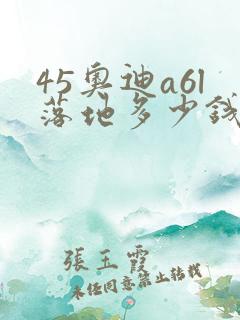 45奥迪a6l
落地多少钱
張玉霞
未经同意禁止转载